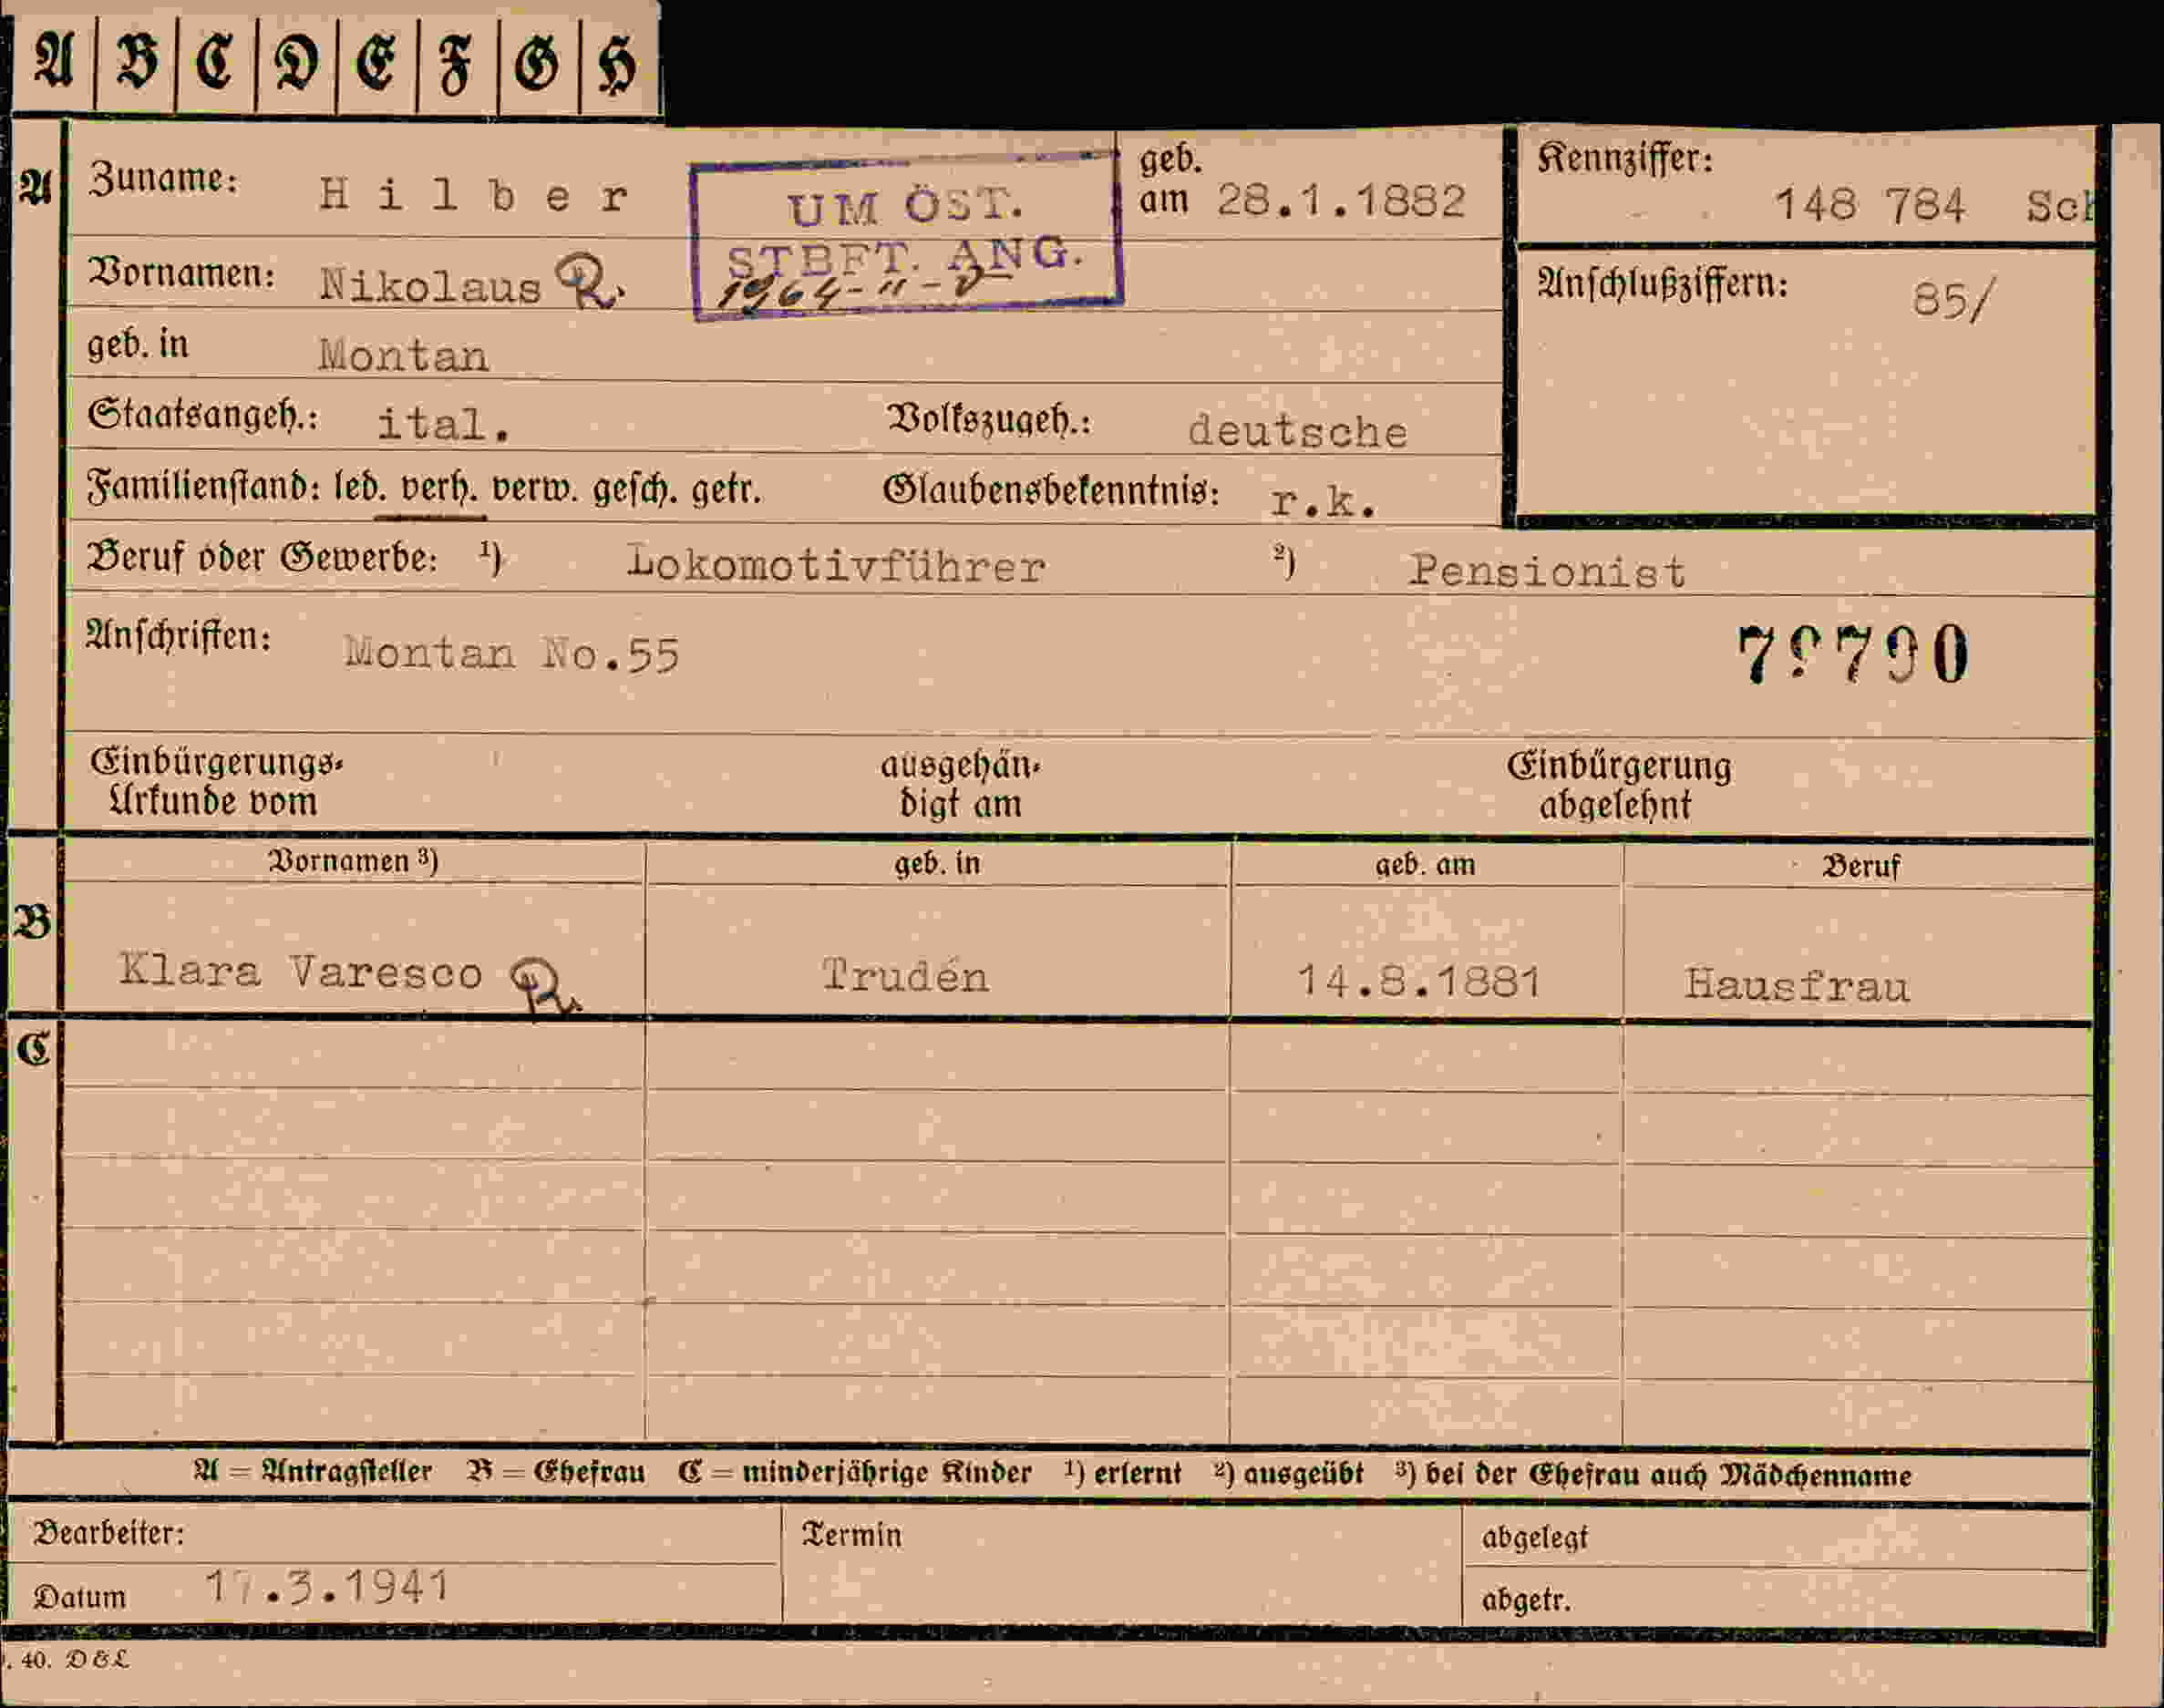 A B C D E F G H
A Zuname: Hilber
UM ÖST.
STBFT. ANG.
geb.
am 28.1.1882
Kennziffer:
148 784 Sch
Vornamen: Nikolaus R.
Anschlußziffern: 85/
geb. in Montan
Staatsangeh.: ital. Volkszugeh.: deutsche
Familienstand: led. verh. verw. gesch. getr. Glaubensbekenntnis: r.k.
Beruf oder Gewerbe: 1) Lokomotivführer 2) Pensionist
Anschriften: Montan No.55
Einbürgerungs-
Urkunde vom
ausgehän-
digt am
Einbürgerung
abgelehnt
Vornamen 3) geb. in geb. am Beruf
B
Klara Varesco R. Truden 14.8.1881 Hausfrau
C
A = Antragsteller B = Ehefrau C = minderjährige Kinder 1) erlernt 2) ausgeübt 3) bei der Ehefrau auch Mädchenname
Bearbeiter: Termin abgelegt
Datum 17.3.1941 abgetr.
. 40. D & L